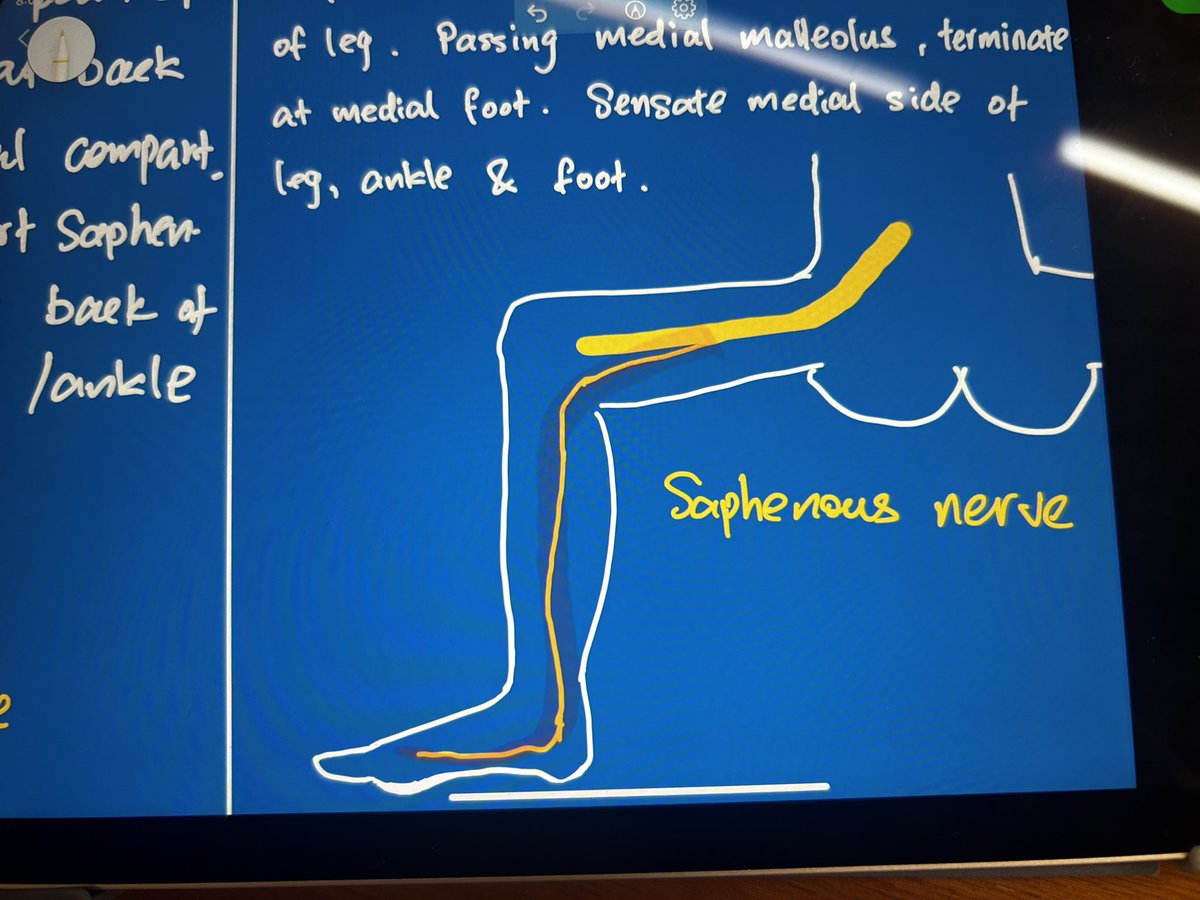 back
compart.
Saphen
back of
/ankle
of leg. Passing medial malleolus, terminate
at medial foot. Sensate medial side of
leg, ankle & foot.
Saphenous nerve